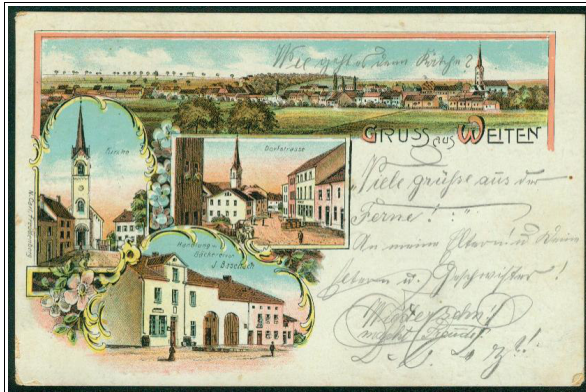 Wie geht es denn Käthe?
GRUSS aus WEITEN
Kirche
Dorfstrasse
Handlung u.
Bäckerei von
J.
"Viele grüsse aus der
Ferne!:"
An meine Eltern u
eltern u. Geschwister!
Wiedersehn!
macht